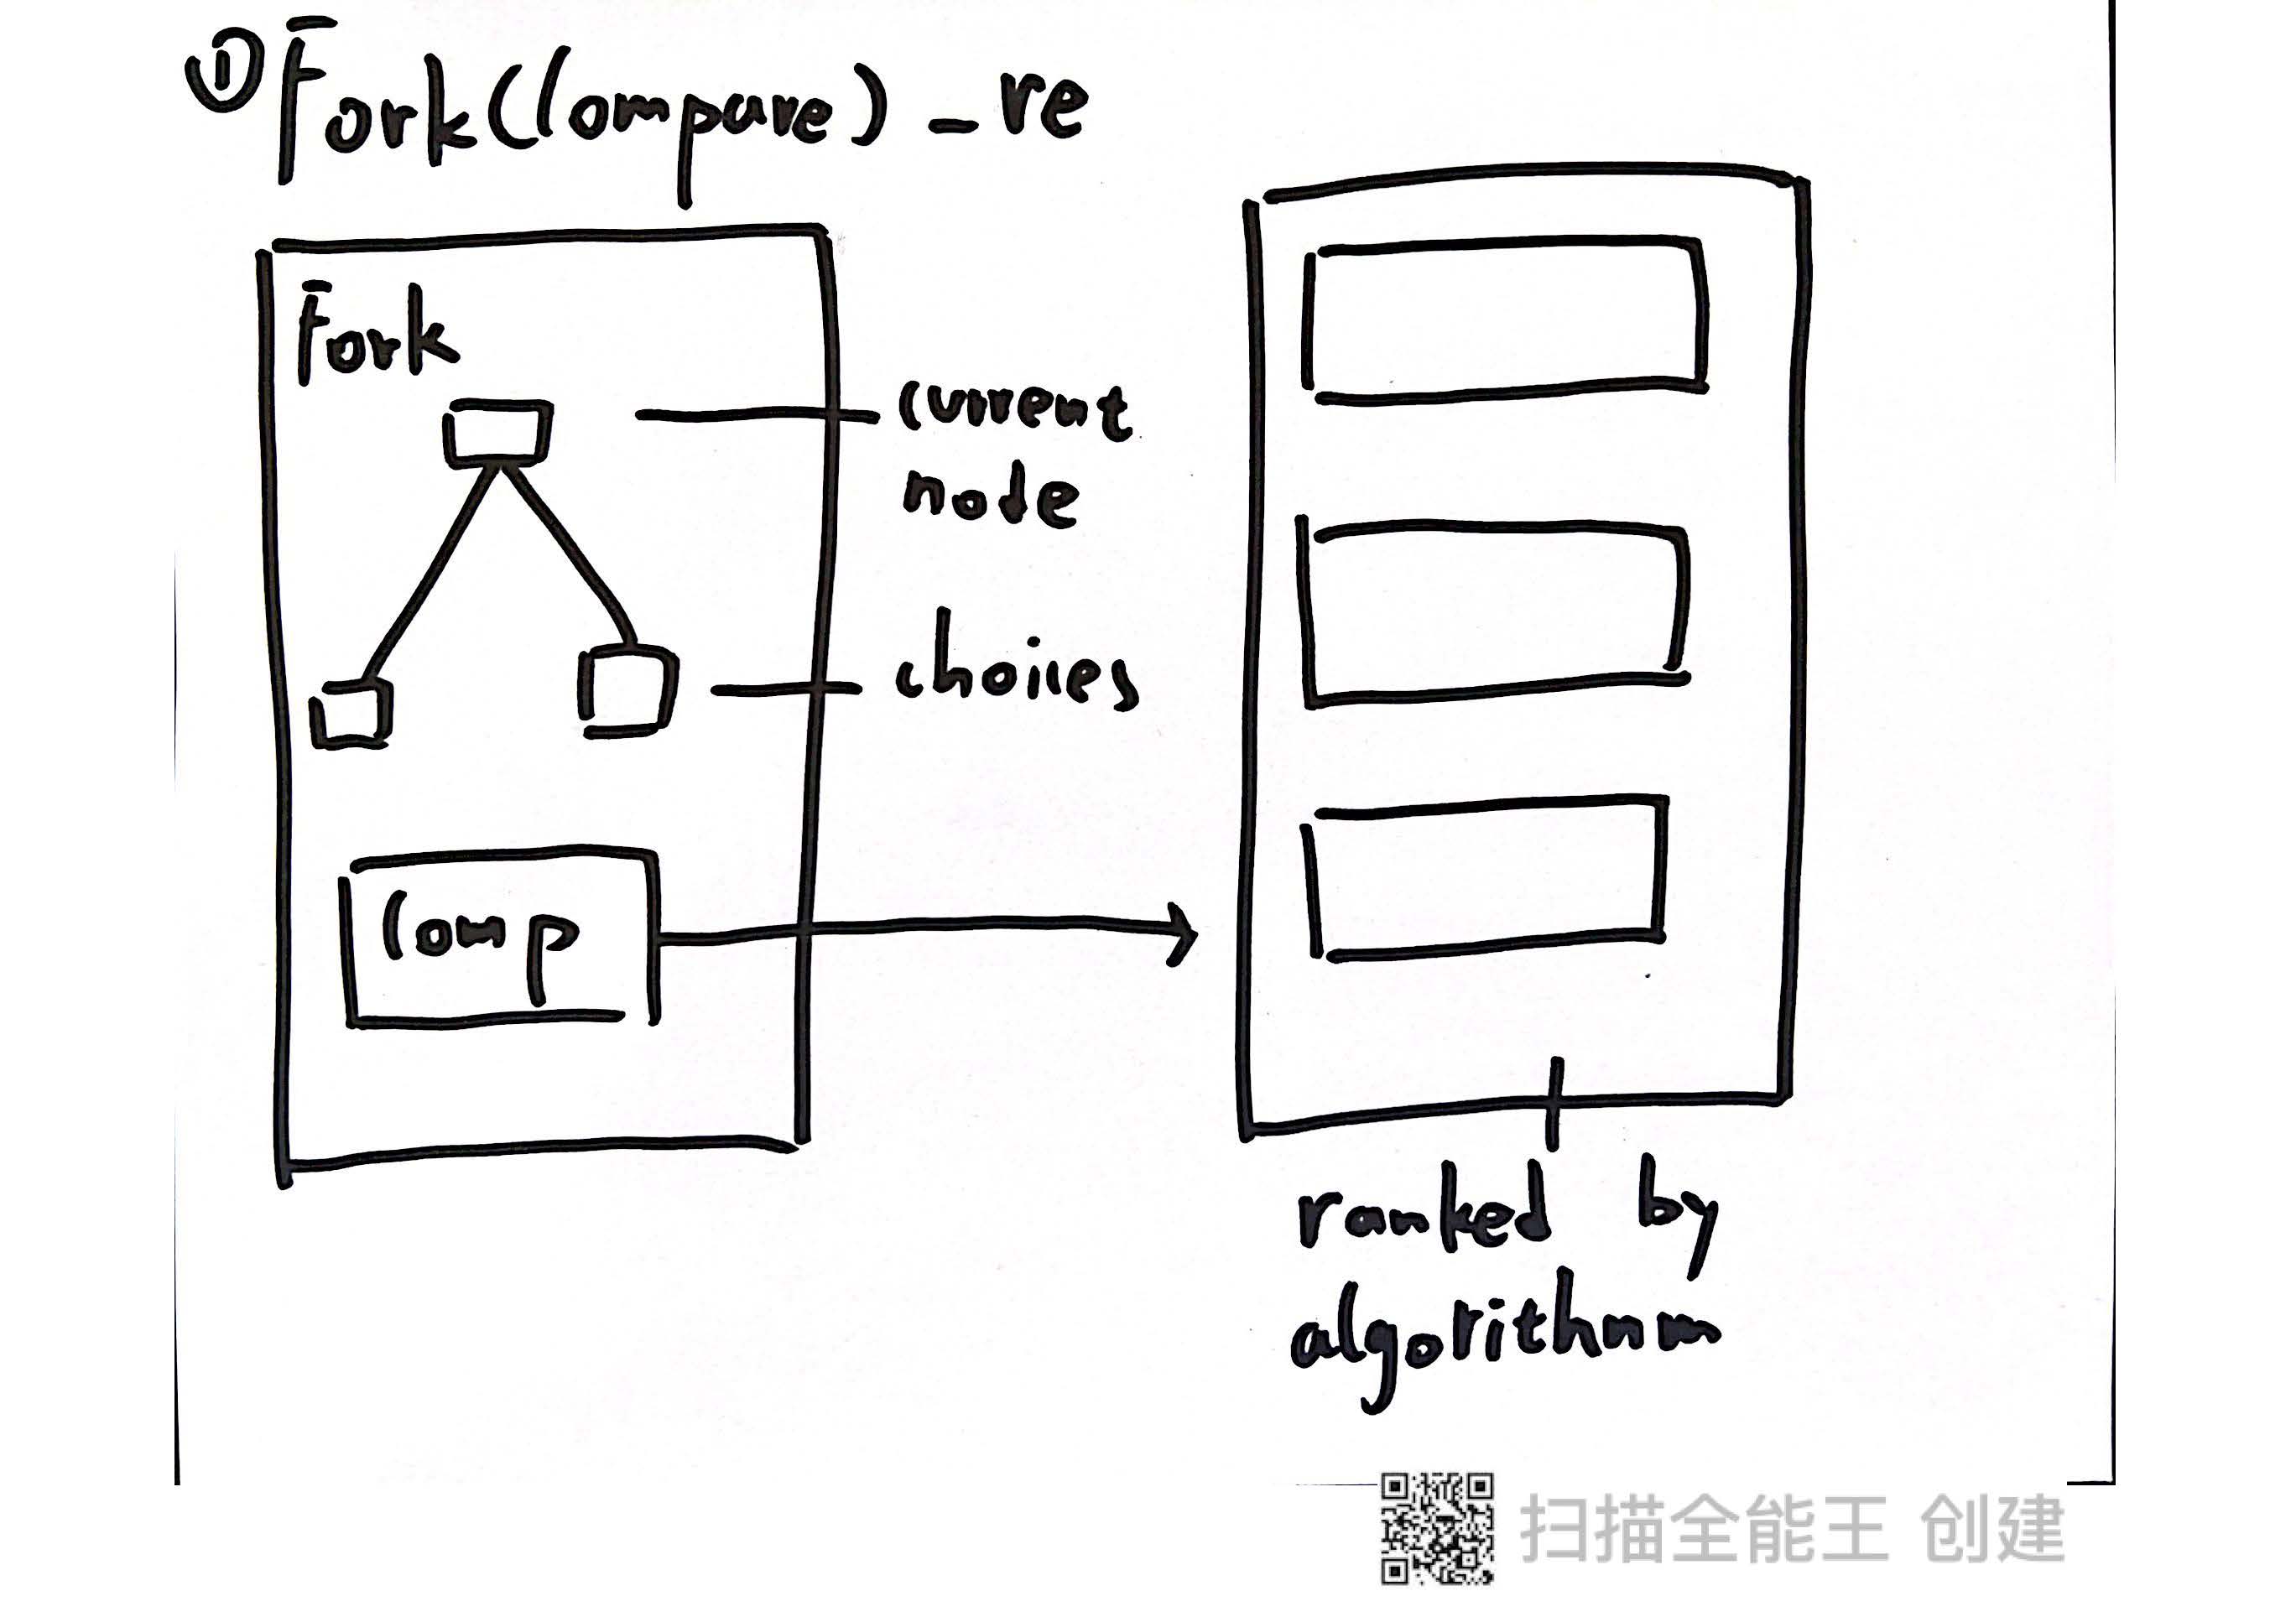 ① Fork(Compare) - re
Fork
current
node
choices
Comp
ranked by
algorithnm
扫描全能王 创建